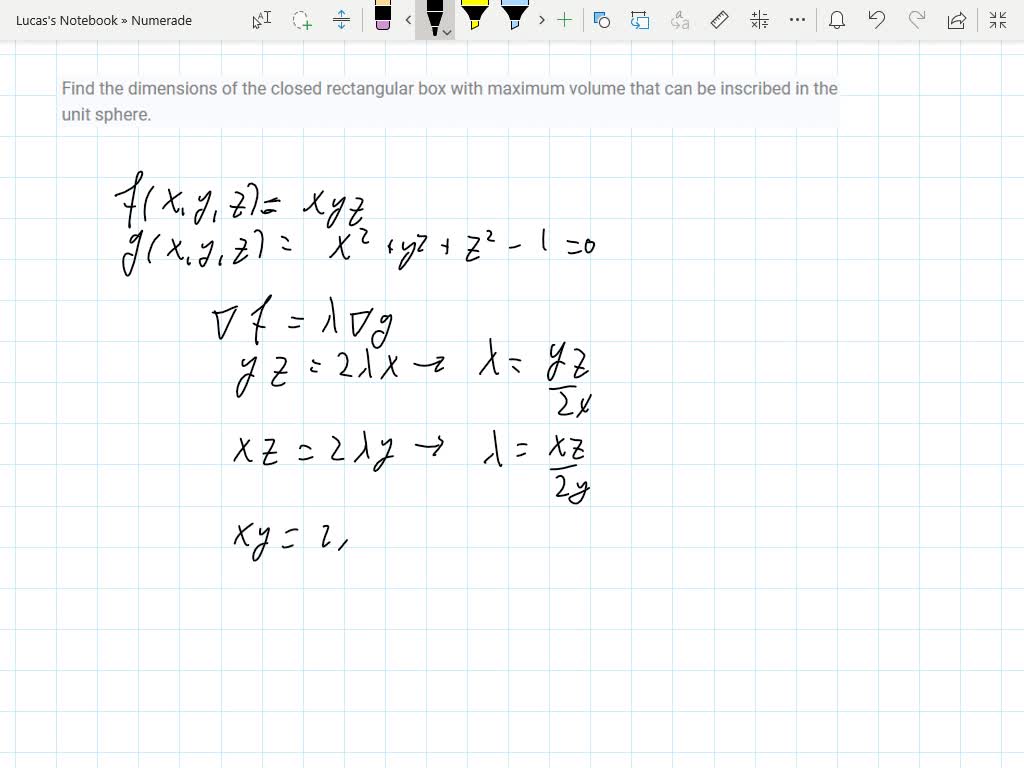 Lucas's Notebook » Numerade
Find the dimensions of the closed rectangular box with maximum volume that can be inscribed in the
unit sphere.
f(x,y,z)= xyz
g(x,y,z)= x² + y² + z² - 1 = 0
∇f = λ∇g
yz = 2λx → λ = yz/2x
xz = 2λy → λ = xz/2y
xy = 2,